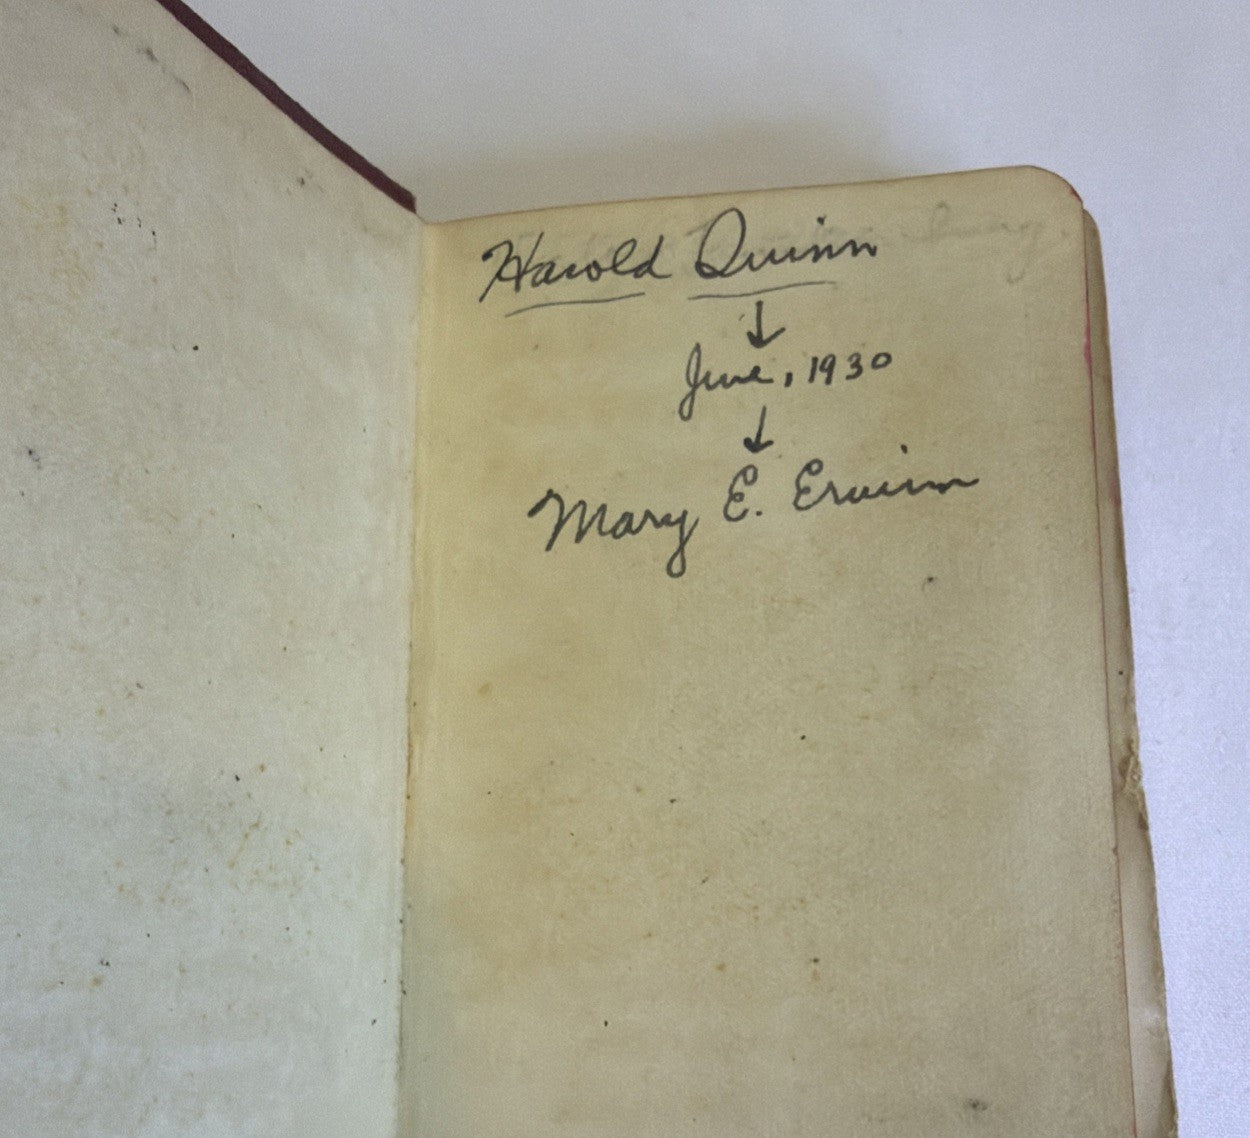 Harold Quinn
↓
June, 1930
↓
Mary E. Erwinn